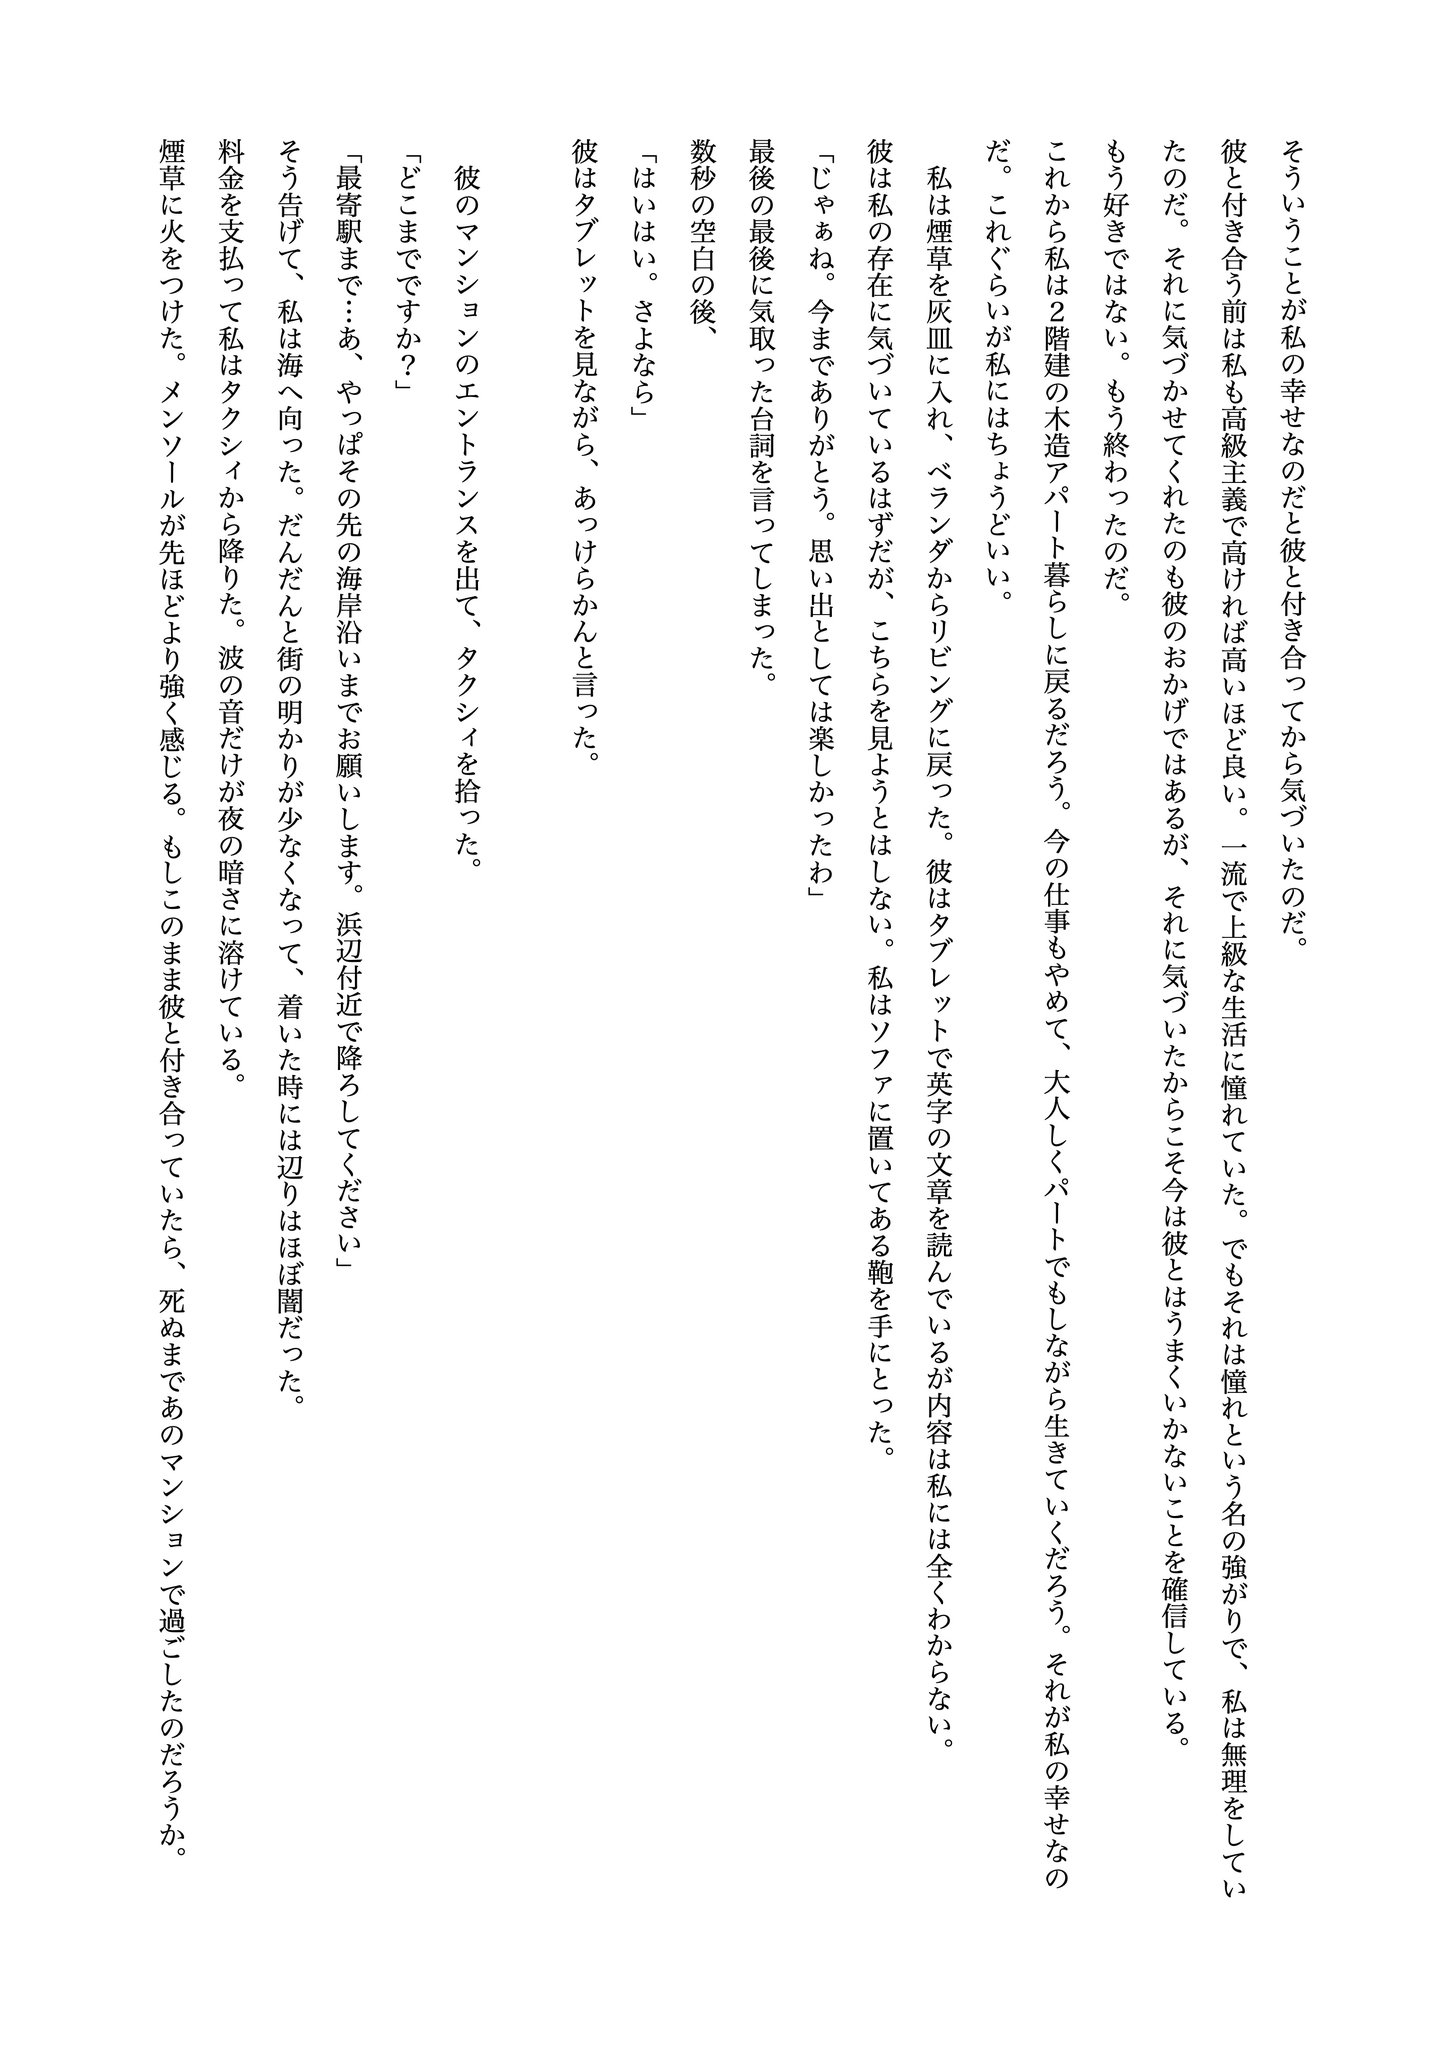 そういうことが私の幸せなのだと彼と付き合ってから気づいたのだ。
彼と付き合う前は私も高級主義で高ければ高いほど良い。一流で上級な生活に憧れていた。でもそれは憧れという名の強がりで、私は無理をしてい
たのだ。それに気づかせてくれたのも彼のおかげではあるが、それに気づいたからこそ今は彼とはうまくいかないことを確信している。
もう好きではない。もう終わったのだ。
これから私は２階建の木造アパート暮らしに戻るだろう。今の仕事もやめて、大人しくパートでもしながら生きていくだろう。それが私の幸せなの
だ。これぐらいが私にはちょうどいい。
　私は煙草を灰皿に入れ、ベランダからリビングに戻った。彼はタブレットで英字の文章を読んでいるが内容は私には全くわからない。
彼は私の存在に気づいているはずだが、こちらを見ようとはしない。私はソファに置いてある鞄を手にとった。
「じゃぁね。今までありがとう。思い出としては楽しかったわ」
最後の最後に気取った台詞を言ってしまった。
数秒の空白の後、
「はいはい。さよなら」
彼はタブレットを見ながら、あっけらかんと言った。
　彼のマンションのエントランスを出て、タクシィを拾った。
「どこまでですか？」
「最寄駅まで…あ、やっぱその先の海岸沿いまでお願いします。浜辺付近で降ろしてください」
そう告げて、私は海へ向った。だんだんと街の明かりが少なくなって、着いた時には辺りはほぼ闇だった。
料金を支払って私はタクシィから降りた。波の音だけが夜の暗さに溶けている。
煙草に火をつけた。メンソールが先ほどより強く感じる。もしこのまま彼と付き合っていたら、死ぬまであのマンションで過ごしたのだろうか。